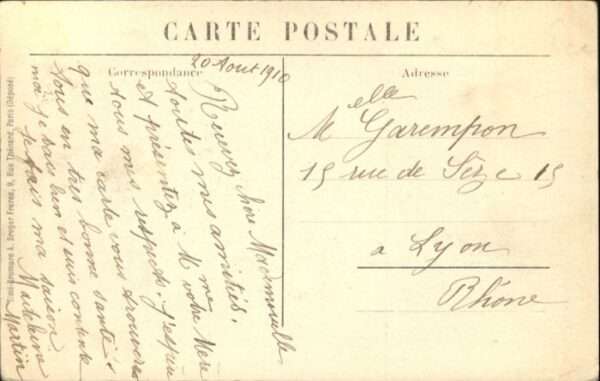 CARTE POSTALE
Correspondance
Adresse
20 Août 1910
Recevez chère Mademoiselle
toutes mes amitiés.
et présentez à Mme votre Mère
tous mes respects. J'espère
que ma carte vous trouvera
tous en très bonne santé
moi je vais bien et suis contente
je fais ma saison
Madeleine
Martin
Melle Garempon
15 rue de Sèze 15
a Lyon
Rhône
A. Breger Frères, 9, Rue Thénard, Paris (Déposé)